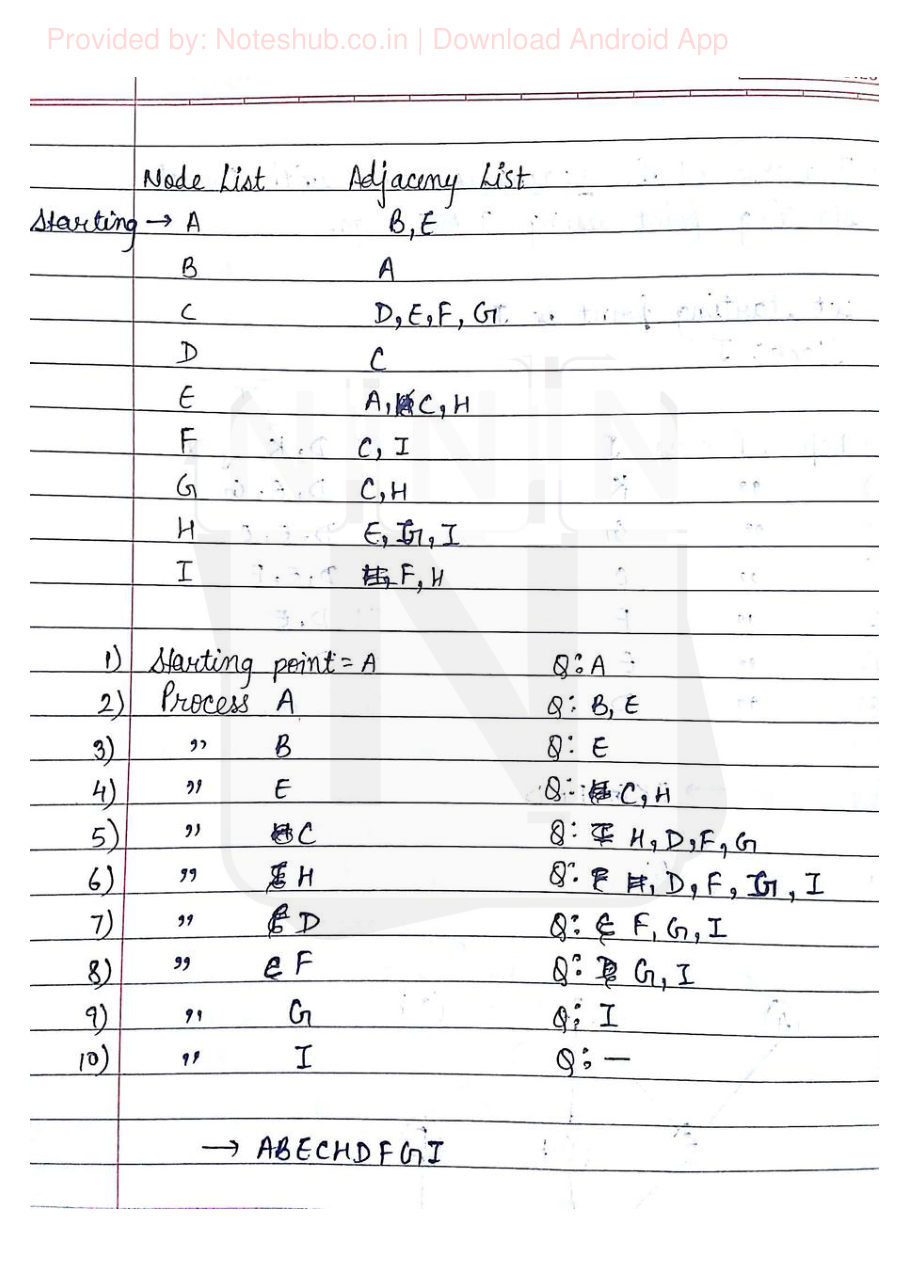 Provided by: Noteshub.co.in | Download Android App
Node List Adjaceny List
Starting → A B, E
B A
C D, E, F, G
D C
E A, C, H
F C, I
G C, H
H E, G, I
I F, H
1) Starting point = A Q: A
2) Process A Q: B, E
3) ,, B Q: E
4) ,, E Q: C, H
5) ,, C Q: H, D, F, G
6) ,, H Q: D, F, G, I
7) ,, D Q: F, G, I
8) ,, F Q: G, I
9) ,, G Q: I
10) ,, I Q: —
→ ABECHDFGI